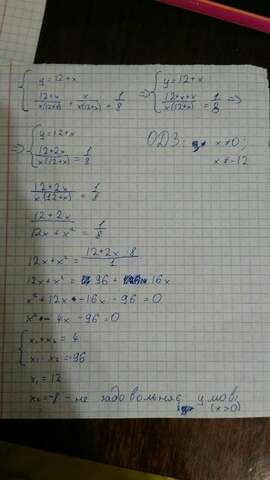 { y = 12 + x
{ (12+x)/(x(12+x)) + x/(x(12+x)) = 1/8 => { y = 12 + x
{ (12+x+x)/(x(12+x)) = 1/8 =>
=> { y = 12 + x
{ (12+2x)/(x(12+x)) = 1/8
ОДЗ: x ≠ 0;
x ≠ -12
(12+2x)/(x(12+x)) = 1/8
(12+2x)/(12x+x²) = 1/8
12x + x² = (12+2x · 8)/1
12x + x² = 96 + 16x
x² + 12x - 16x - 96 = 0
x² - 4x - 96 = 0
{ x₁ + x₂ = 4
{ x₁ · x₂ = -96
x₁ = 12
x₂ = -8 - не задовольняє умові
(x>0)